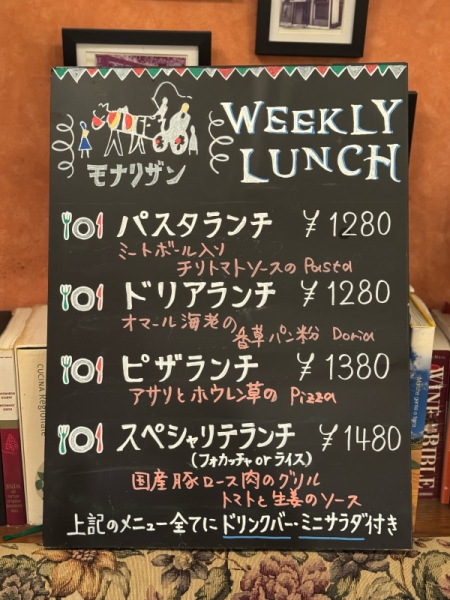 WEEKLY
LUNCH
モナリザン
パスタランチ ¥1280
ミートボール入り
チリトマトソースの Pasta
ドリアランチ ¥1280
オマール海老の
香草パン粉 Doria
ピザランチ ¥1380
アサリとホウレン草の Pizza
スペシャリテランチ ¥1480
(フォカッチャ or ライス)
国産豚ロース肉のグリル
トマトと生姜のソース
上記のメニュー全てにドリンクバー・ミニサラダ付き
CUCINA REGIONALE
WINE BIBLE